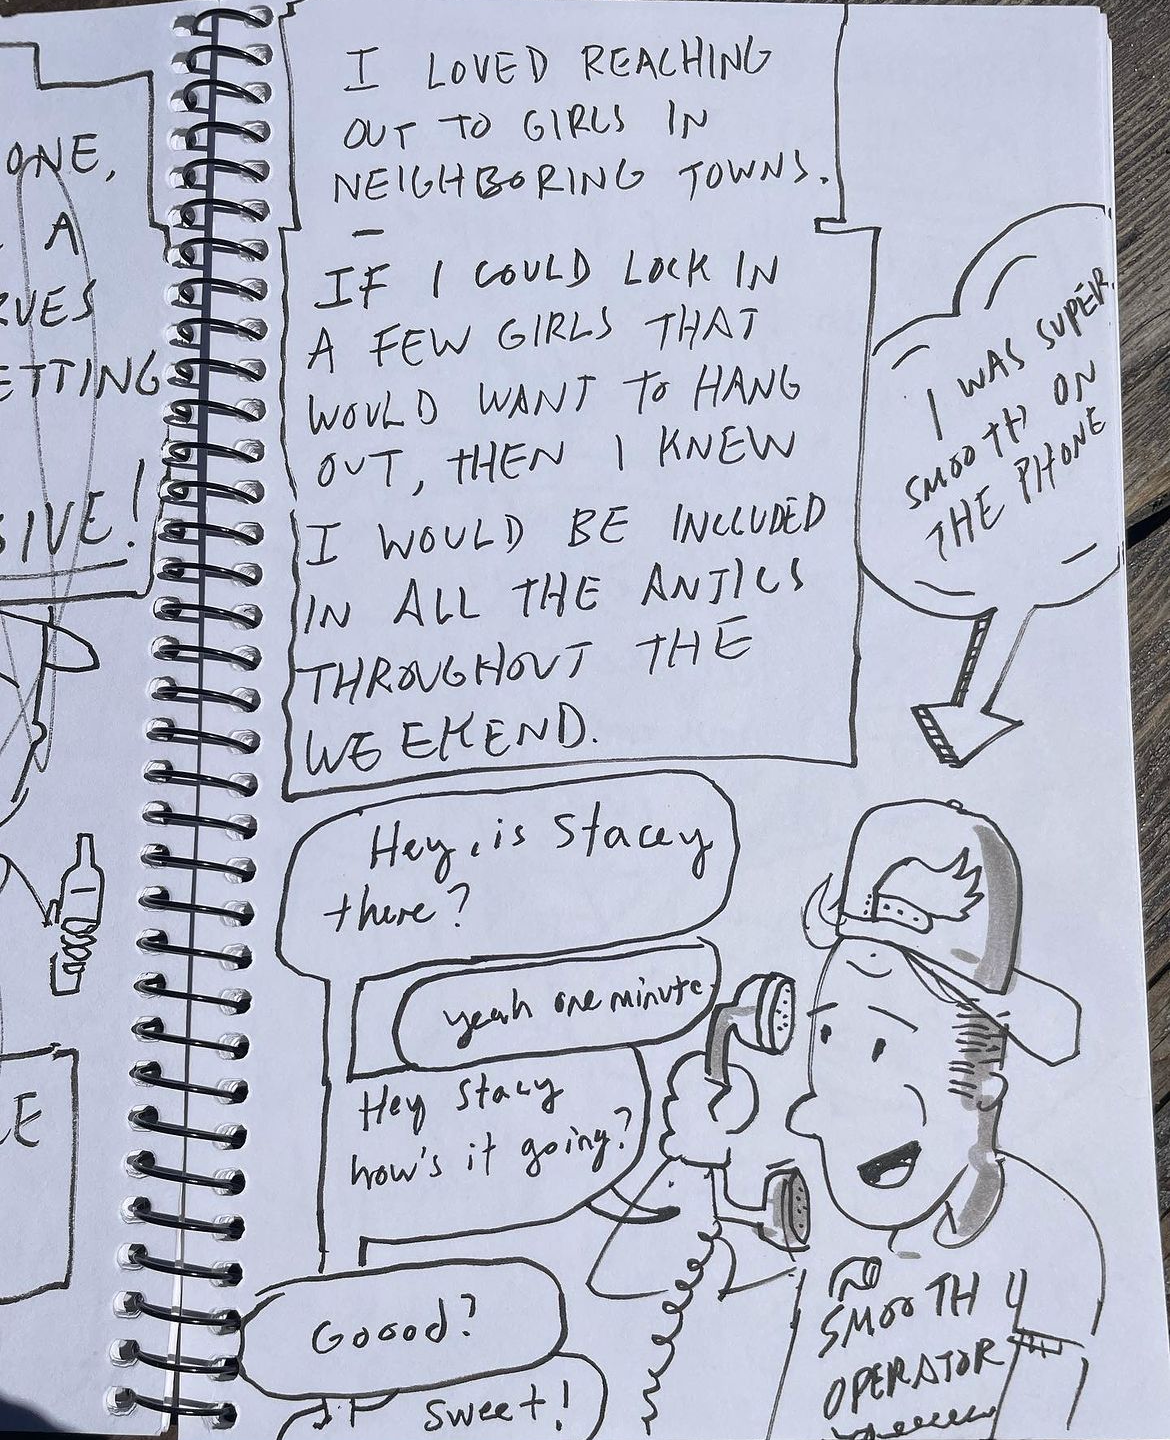 ONE,
A
RVES
ETTING
SIVE!
E
I LOVED REACHING
OUT TO GIRLS IN
NEIGHBORING TOWNS.
IF I COULD LOCK IN
A FEW GIRLS THAT
WOULD WANT TO HANG
OUT, THEN I KNEW
I WOULD BE INCLUDED
IN ALL THE ANTICS
THROUGHOUT THE
WEEKEND.
I WAS SUPER
SMOOTH ON
THE PHONE
Hey, is Stacey
there?
yeah one minute.
Hey Stacy
how's it going?
Goood?
Sweet!
SMOOTH
OPERATOR